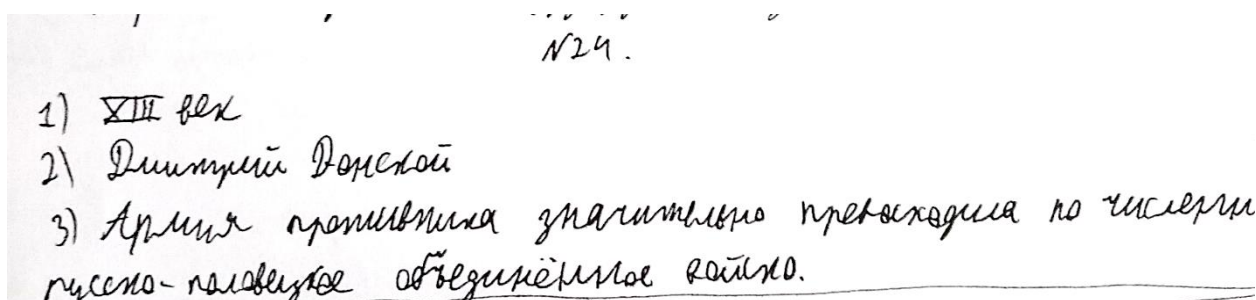 N24.
1) XIII век
2) Дмитрий Донской
3) Армия противника значительно превосходила по числерн
русско-половецкое объединённое войско.